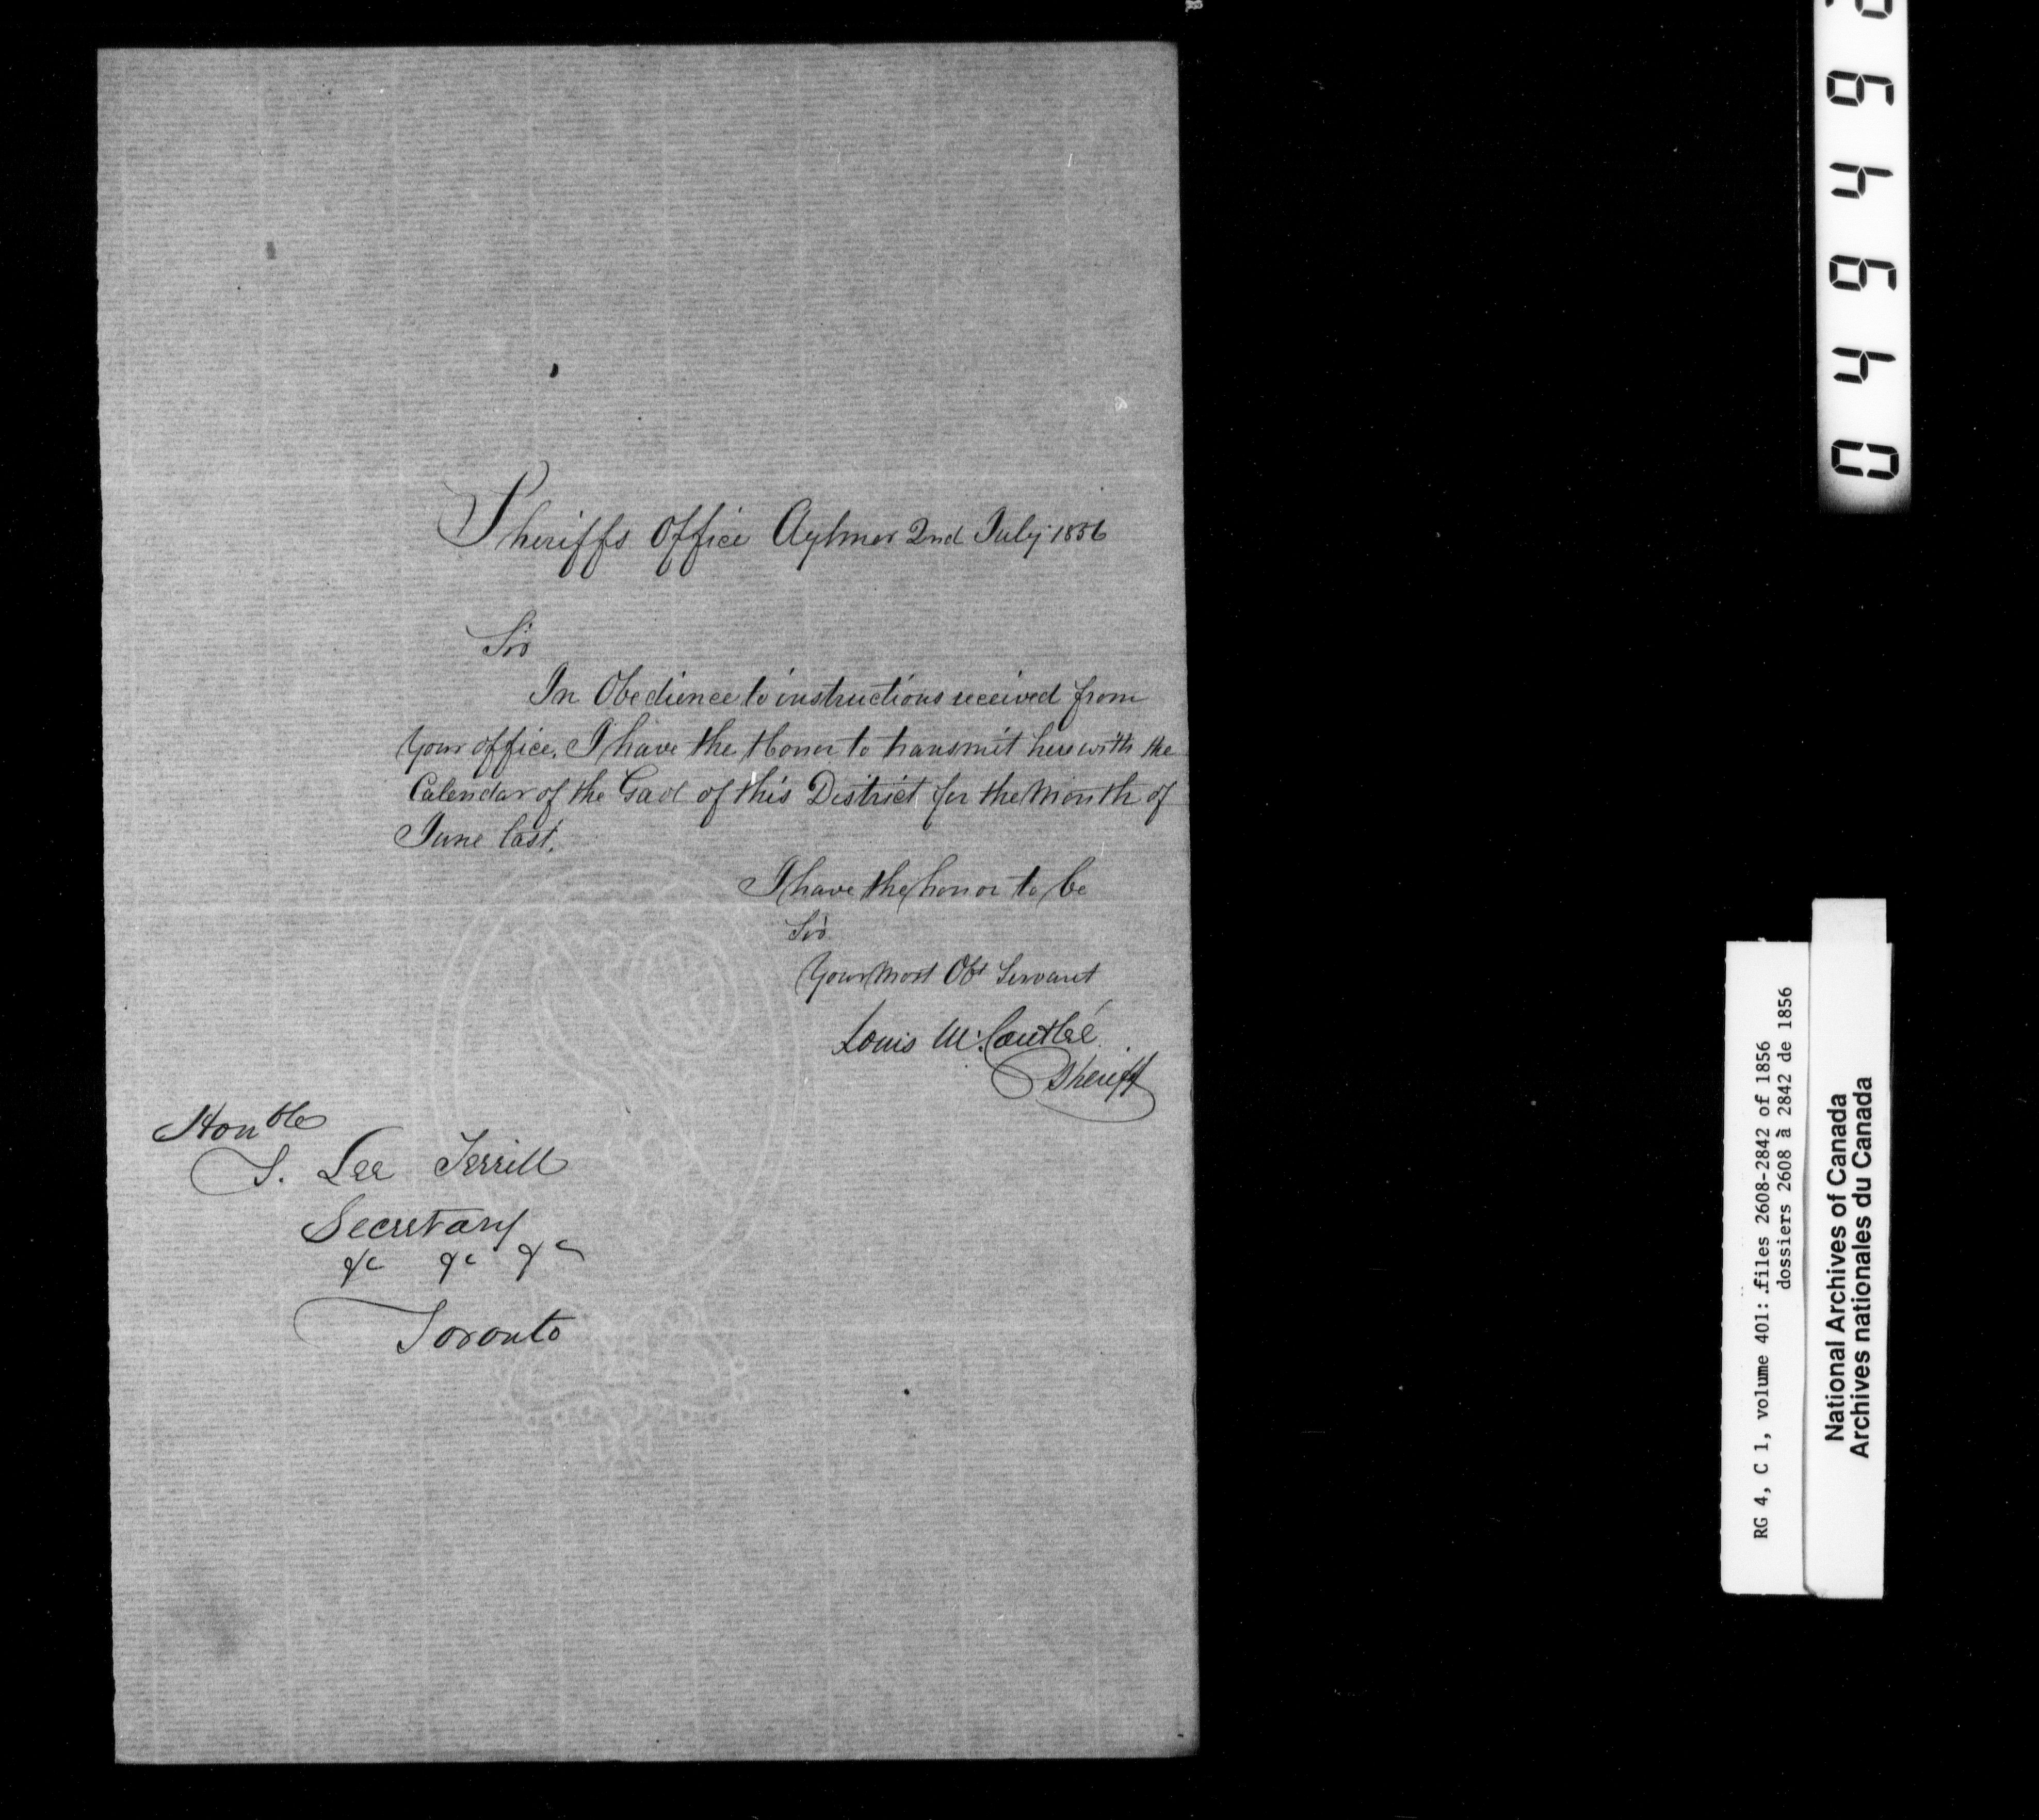 Sheriffs Office Aylmer 2nd July 1856
Sir
In Obedience to instructions received from
Your office, I have the Honor to transmit herewith the
Calendar of the Gaol of this District for the Month of
June last.
I have the honor to be
Sir
Your Most Obt Servant
Louis M. Coutlée
Sheriff
Honble
T. Lee Terrill
Secretary
&c &c &c
Toronto
0 4 9 4 9
RG 4, C 1, volume 401: files 2608-2842 of 1856
dossiers 2608 à 2842 de 1856
National Archives of Canada
Archives nationales du Canada